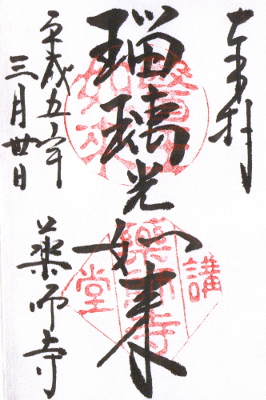 奉拝
瑠璃光如来
平成五年
三月廿日
薬師寺
如來
講
藥師寺
堂